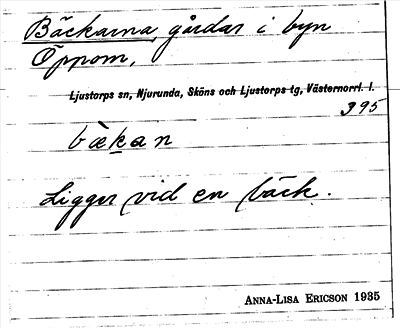 Bäckarna, gårdar i byn
Öppom,
Ljustorps sn, Njurunda, Sköns och Ljustorps tg, Västernorrl. l.
395
bækan
Ligger vid en bäck.
ANNA-LISA ERICSON 1935